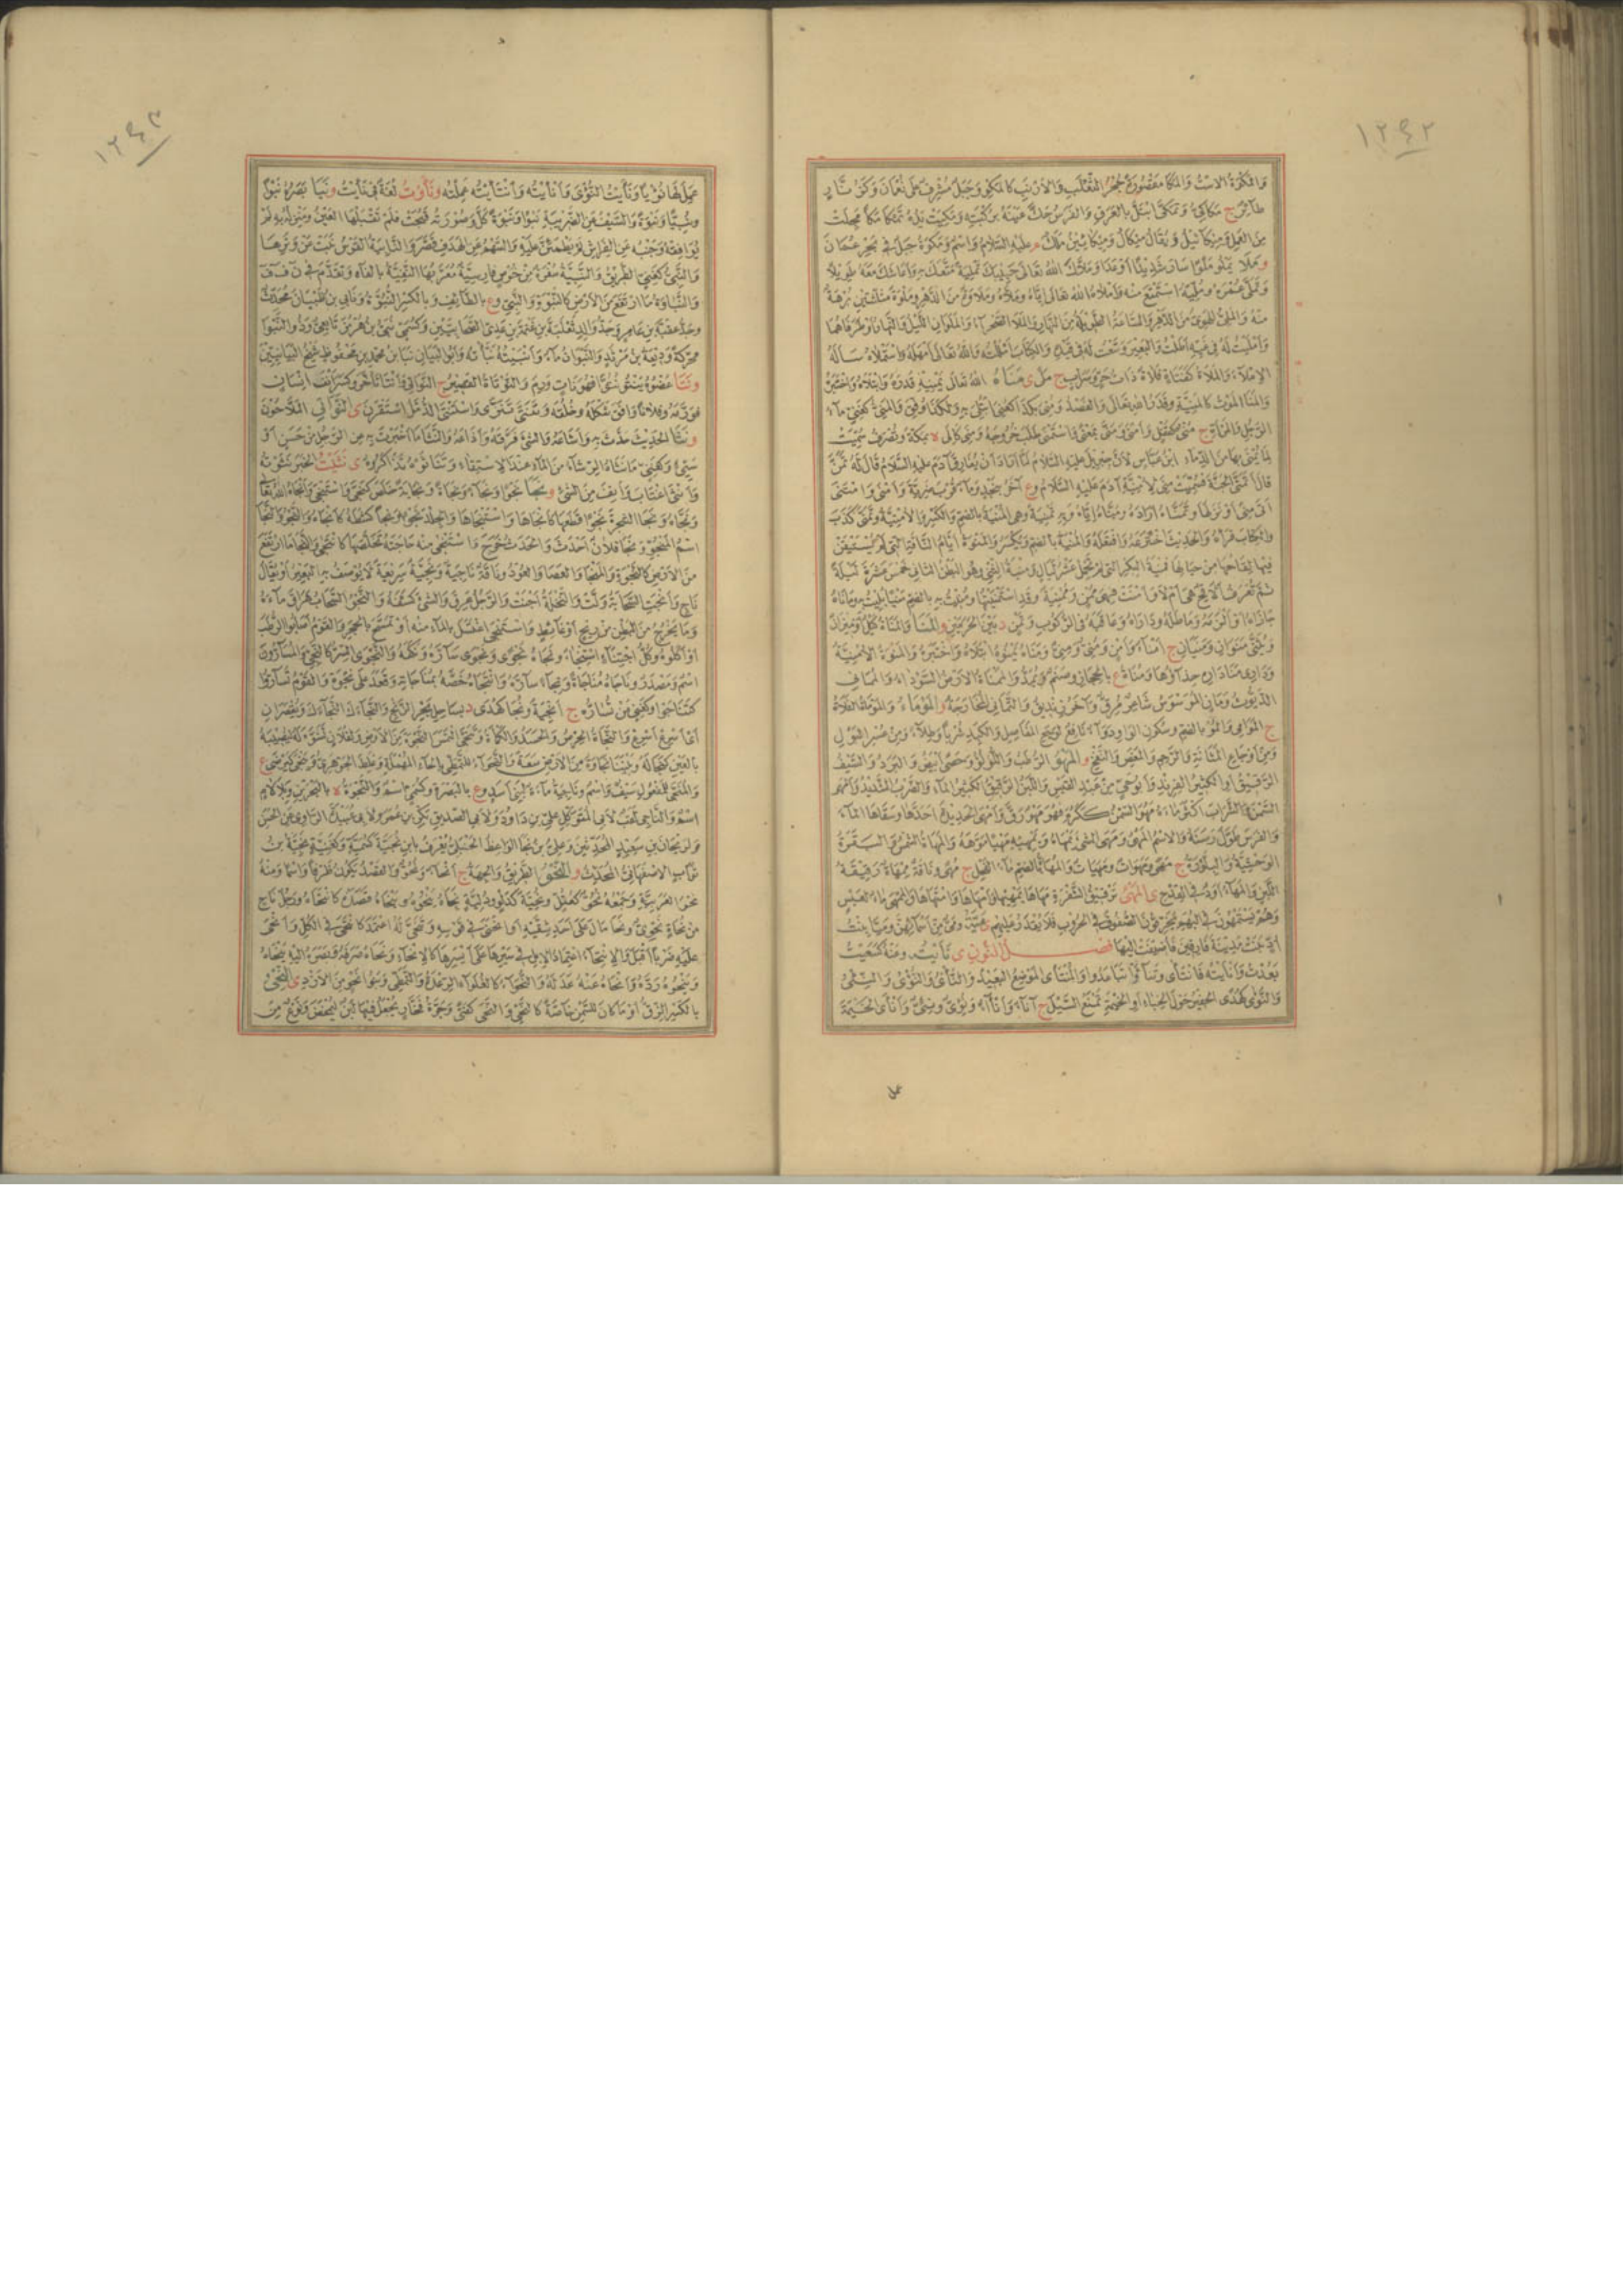 ١٢٤٢
والمكوة الاست والمكا مقصورة جحر الثعلب والارنب كالمكو وجبل مشرف على نعمان وكزنار
طائر ج مكاكي وتمكى ابتل بالعرق والفرس حك عينه بركبته ومكيت يده تمكا مكا مجلت
من العمل وميكائيل ويقال ميكال وميكائين ملك م عليه السلام واسم ومكوة جبل في بحر عمان
و ملا يملو ملوا سار شديدا او عدا وملاك الله تعالى حبيبك تملية متعك به واعاشك معه طويلا
وتملى عمره ومليه استمتع منه واملاه الله تعالى اياه وملاه وملاوة من الدهر وملوة مثلثتين برهة
منه والملي الهوي من الدهر والساعة الطويلة من النهار والملا الصحراء والملوان الليل والنهار او طرفاهما
وامليت له في غيه اطلت والبعير وسعت له في قيده والكتاب امللته والله تعالى امهله واستملاه ساله
الاملاء والملاة كقناة فلاة ذات حر وسراب ج ملى ى مناه الله تعالى يمنيه قدره وابتلاه واختبره
والمنا الموت كالمنية وقدر الله تعالى والقصد ومني بكذا كعني ابتلي به ولكذا وفق والمني كغني ماء
الرجل والمراة ج مني كقفل وامنى ومنى بمعنى واستمنى طلب خروجه ومنى كالى لا بمكة وتصرف سميت
لما يمنى بها من الدماء ابن عباس لان جبريل عليه السلام لما اراد ان يفارق آدم عليه السلام قال له تمن
قال اتمنى الجنة فسميت منى لامنية آدم عليه السلام وع آخر بنجد وماء قرب ضرية وامنى وامتنى
اتى منى او نزلها وتمناه اراده ومناه اياه وبه تمنية وهي المنية بالضم والكسر والامنية وتمنى كذب
والكتاب قراه والحديث اخترعه وافتعله والمنية بالضم ويكسر والمنوة ايام الناقة التي لم يستيقن
فيها لقاحها من حيالها فمنية البكر التي لم تحمل عشر ليال ومنية الثني وهو البطن الثاني خمس عشرة ليلة
ثم تعرف الاقح هي ام لا وامنت فهي ممن وممنية وقد استمنيتها ومنيت به بالضم منيا بليت وماناه
جازاه او الزمه وماطله وداراه وعاقبه في الركوب وتمن د بين الحرمين و المنا والمناة كيل او ميزان
ويثنى منوان ومنيان ج امناء وامن ومني ومني ومناه يمنوه ابتلاه واختبره والمنوة الامنية
وداري منا داره حذاؤها ومناة ع بالحجاز وصنم ويمد والممناة الارض السوداء والماني
الديوث وماني الموسوس شاعر م رق وآخر زنديق والتماني المخارجة و الموماء والموماة الفلاة
ج الموامي والمو بالضم وسكون الواو دواء نافع لوجع المفاصل والكبد شربا وطلاء ومن عسر البول
ومن اوجاع المثانة والرحم والمغص والنفخ و المهو الرطب واللؤلؤ وحصى ابيض والبرد والسيف
الرقيق او الكثير الفرند وابو حي من عبد القيس واللبن الرقيق الكثير الماء والضرب الشديد وامهى
السمن والشراب اكثر ماءه مهو السمن ككرم فهو مهو رق وامهى الحديدة احدها وسقاها الماء
والفرس طول رسنه والاسم المهي ومهى الشيء يمهاه ويمهيه مهيا موهه والمهاة الشمس والبقرة
الوحشية والبلورة ج مها ومهوات ومهيات والمهاة بالضم ماء الفحل ج مهى وناقة ممهاء رقيقة
اللبن والمهاء اود في القدح ى المهى ترقيق الشفرة مهاها يمهيها وامهاها وامتهاها والممهى ماء لعبس
وهم يستمهون في البهم يخرقون الصفوف في الحروب فلا يقدر عليهم مية ومي من اسمائهن ومياء بنت
اد بنت مدينة فارقين فاضيفت اليها فصل النون ى نايت ومنه كسعيت
بعدت وانايته فانتاى وتناءوا تباعدوا والمنتاى الموضع البعيد والناي والنؤي والنئي
والنؤى كهدى الحفير حول الخباء او الخيمة تمنع السيل ج آناء وانآء ونؤي ونئي وانأى الخيمة
عمل
١٢٤٣
عمل لها نؤيا ونايت النؤى وانايته وانتايته عملته ونأوت لغة في نأيت و نبا بصره نبوا
ونبيا ونبوة والسيف عن الضريبة نبوا ونبوة كل وصورته قبحت فلم تقبلها العين ومنزله به لم
يوافقه وجنبه عن الفراش لم يطمئن عليه والسهم عن الهدف قصر والنابية القوس نبت عن وترها
والنبي كغني الطريق والنبية سفرة من خوص فارسية معربها النفية بالفاء وتقدم في ن ف ف
والنباوة ما ارتفع من الارض كالنبوة والنبي وع بالطائف وبالكسر النبوة ونابي بن ظبيان محدث
وجد عقبة بن عامر وجد والد ثعلبة بن غنمة بن عدي الصحابيين وكسمي نبي بن هرمز تابعي وذو النبوان
محركة وديعة بن مرثد والنبوان ماء وانبيته نباته وابو البيان نبا بن محمد بن محفوظ شيخ البيانيين
و نتا عضوه ينتو نتوا فهو نات ورم والنوتاة القصير ج النواتي وانتا تاخر وكسر انف انسان
فورمه وفلانا وافق شكله وخلقه وتنتى تنزى واستنتى الدمل استقرن ى النواتي الملاحون
و نثا الحديث حدث به واشاعه والشيء فرقه واذاعه والنثا ما اخبرت به عن الرجل من حسن او
سيئ وكغني ما نثاه الرشاء من الماء عند الاستقاء وتناثوه تذاكروه ى نثيت الخبر نثوته
وانثى اغتاب وانف من الشيء و نجا نجوا ونجاء ونجاة ونجاية خلص كنجى واستنجى وانجاه الله تعالى
ونجاه ونجا الشجرة نجوا قطعها كانجاها واستنجاها والجلد نجوا ونجا كشطه كانجاه والنجو والنجا
اسم المنجو ونجا فلان احدث والحدث خرج واستنجى منه حاجته تخلصها كانتجى والنجا ما ارتفع
من الارض كالنجوة والمنجا والعصا والعود وناقة ناجية ونجية سريعة لا يوصف به البعير او يقال
ناج وانجت السحابة ولت والنخلة اجنت والرجل عرق والشيء كشفه والنجو السحاب هراق ماءه
وما يخرج من البطن من ريح او غائط واستنجى اغتسل بالماء منه او تمسح بالحجر والقوم اصابوا الرطب
او اكلوه وكل اجتناء استنجاء ونجاه نجوا ونجوى ساره ونكهه والنجوى السر كالنجي والمسارون
اسم ومصدر وناجاه مناجاة ونجاء ساره وانتجاه خصه بمناجاته وقعد على نجوة والقوم تساروا
كتناجوا وكغني من تساره ج انجية ونجا كهدى د بساحل بحر الزنج والنجاءك النجاءك ويقصران
اي اسرع اسرع والنجاة الحرص والحسد والكماة وتنجى التمس النجوة من الارض ولفلان تشوه له ليصيبه
بالعين كنجا له وبيننا نجاوة من الارض سعة والنجواء للتمطي بالحاء المهملة وغلط الجوهري ونجي كرضي ع
والمنجى للمفعول سيف واسم وناجية ماءة لبني اسد وع بالبصرة وكسمي اسم والنجوة لا بالبحرين وبلا لام
اسم والناجي لقب لابي المتوكل علي بن داود ولابي الصديق بكر بن عمر ولابي عبيدة الراوي عن الحسن
ولريحان بن سعيد المحدثين وعلي بن نجا الواعظ الحنبلي يعرف بابن نجية كسمية وكغنية نجية بنت
ثواب الاصفهاني المحدث و النحو الطريق والجهة ج انحاء ونحو والقصد يكون ظرفا واسما ومنه
نحو العربية وجمعه نحو كعتل ونحية كدلو ودلية نحاه ينحوه وينحاه قصده كانتحاه ورجل ناح
من نحاة نحوي ونحا مال على احد شقيه او انحنى في قوسه وتنحى له اعتمد كانتحى في الكل وانحى
عليه ضربا اقبل والانتحاء اعتماد الابل في سيرها على ايسرها كالانحاء ونحاه صرفه وبصره اليه ينحاه
وينحوه رده وانحاه عنه عدله والنحواء كالغلواء الرعدة والتمطي وبنو نحو من الازد ى النحي
بالكسر الزق او ما كان للسمن خاصة كالنحي والنحى كفتى وجرة فخار يجعل فيها لبن ليمخض ونوع من